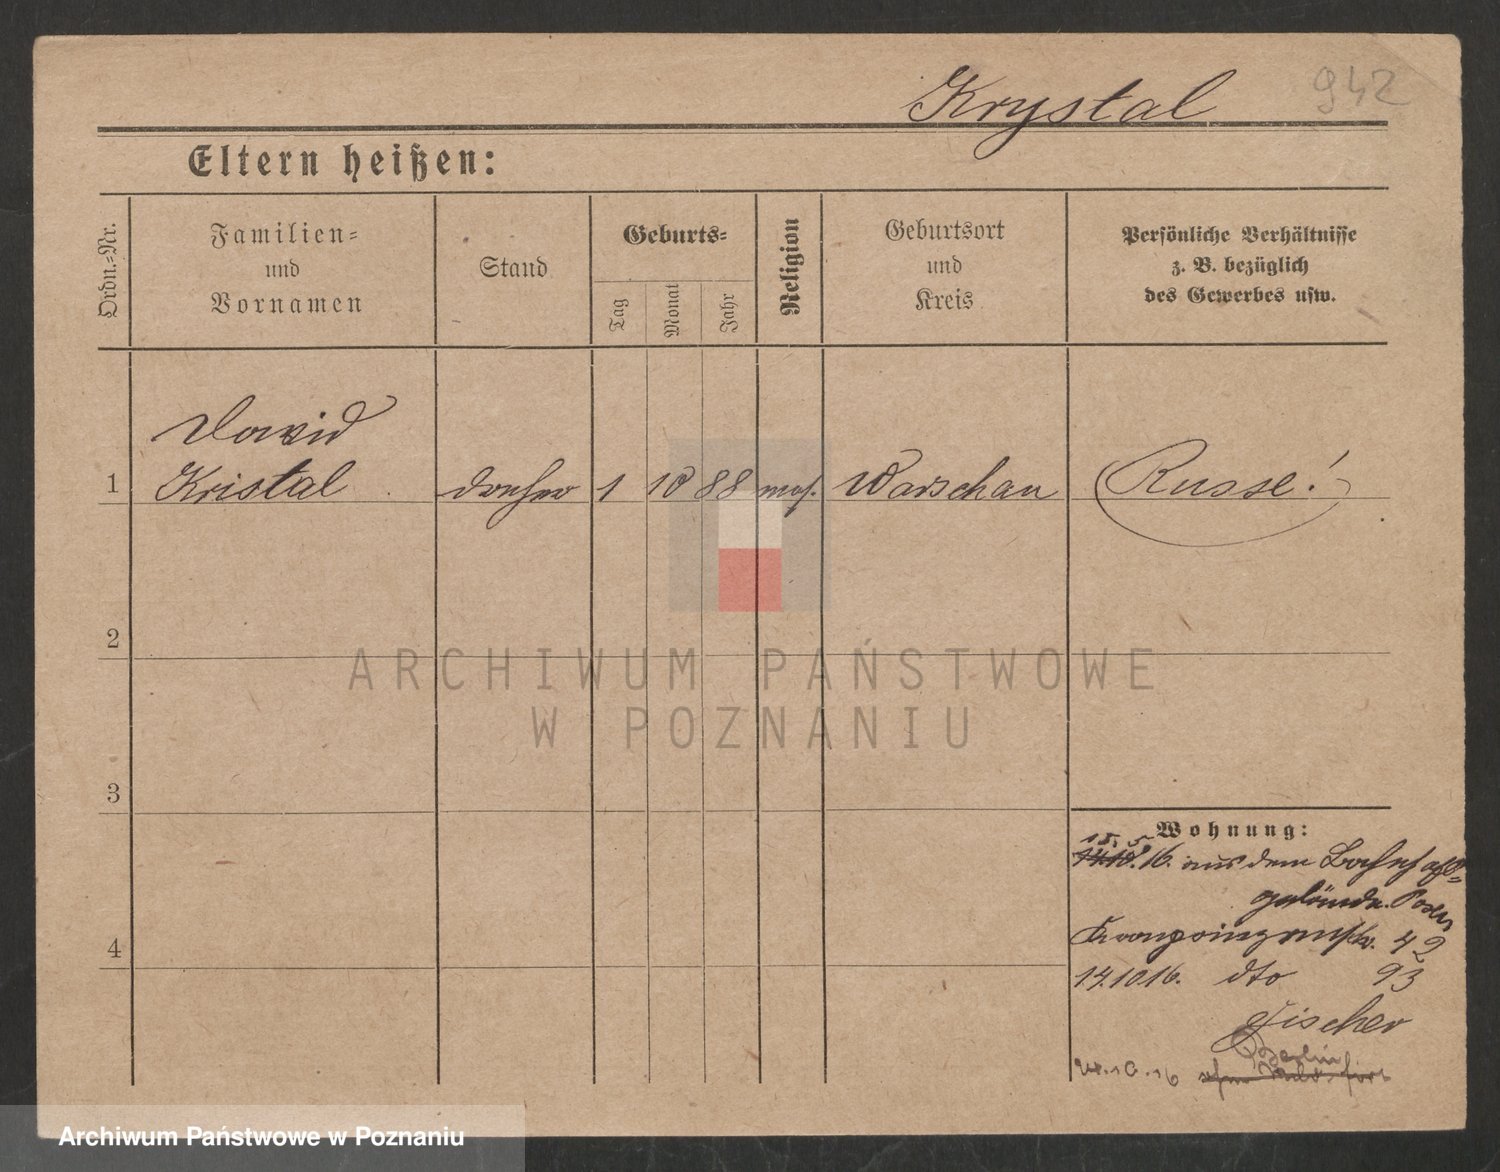 942
Krystal
Eltern heißen:
Ordn.-Nr.
Familien-
und
Vornamen
Stand
Geburts-
Tag
Monat
Jahr
Religion
Geburtsort
und
Kreis
Persönliche Verhältnisse
z. B. bezüglich
des Gewerbes usw.
Dawid
1 Kristal Dreher 1 10 88 mos. Warschau Russe!
2
3
4
Wohnung:
15. 5.
14.10. 16. aus dem Bahnhofs-
gelände. Posen
Kronprinzenstr. 42
14.10.16. dto 93
Fischer
Berlin
24.10.16
ARCHIWUM PAŃSTWOWE
W POZNANIU
Archiwum Państwowe w Poznaniu